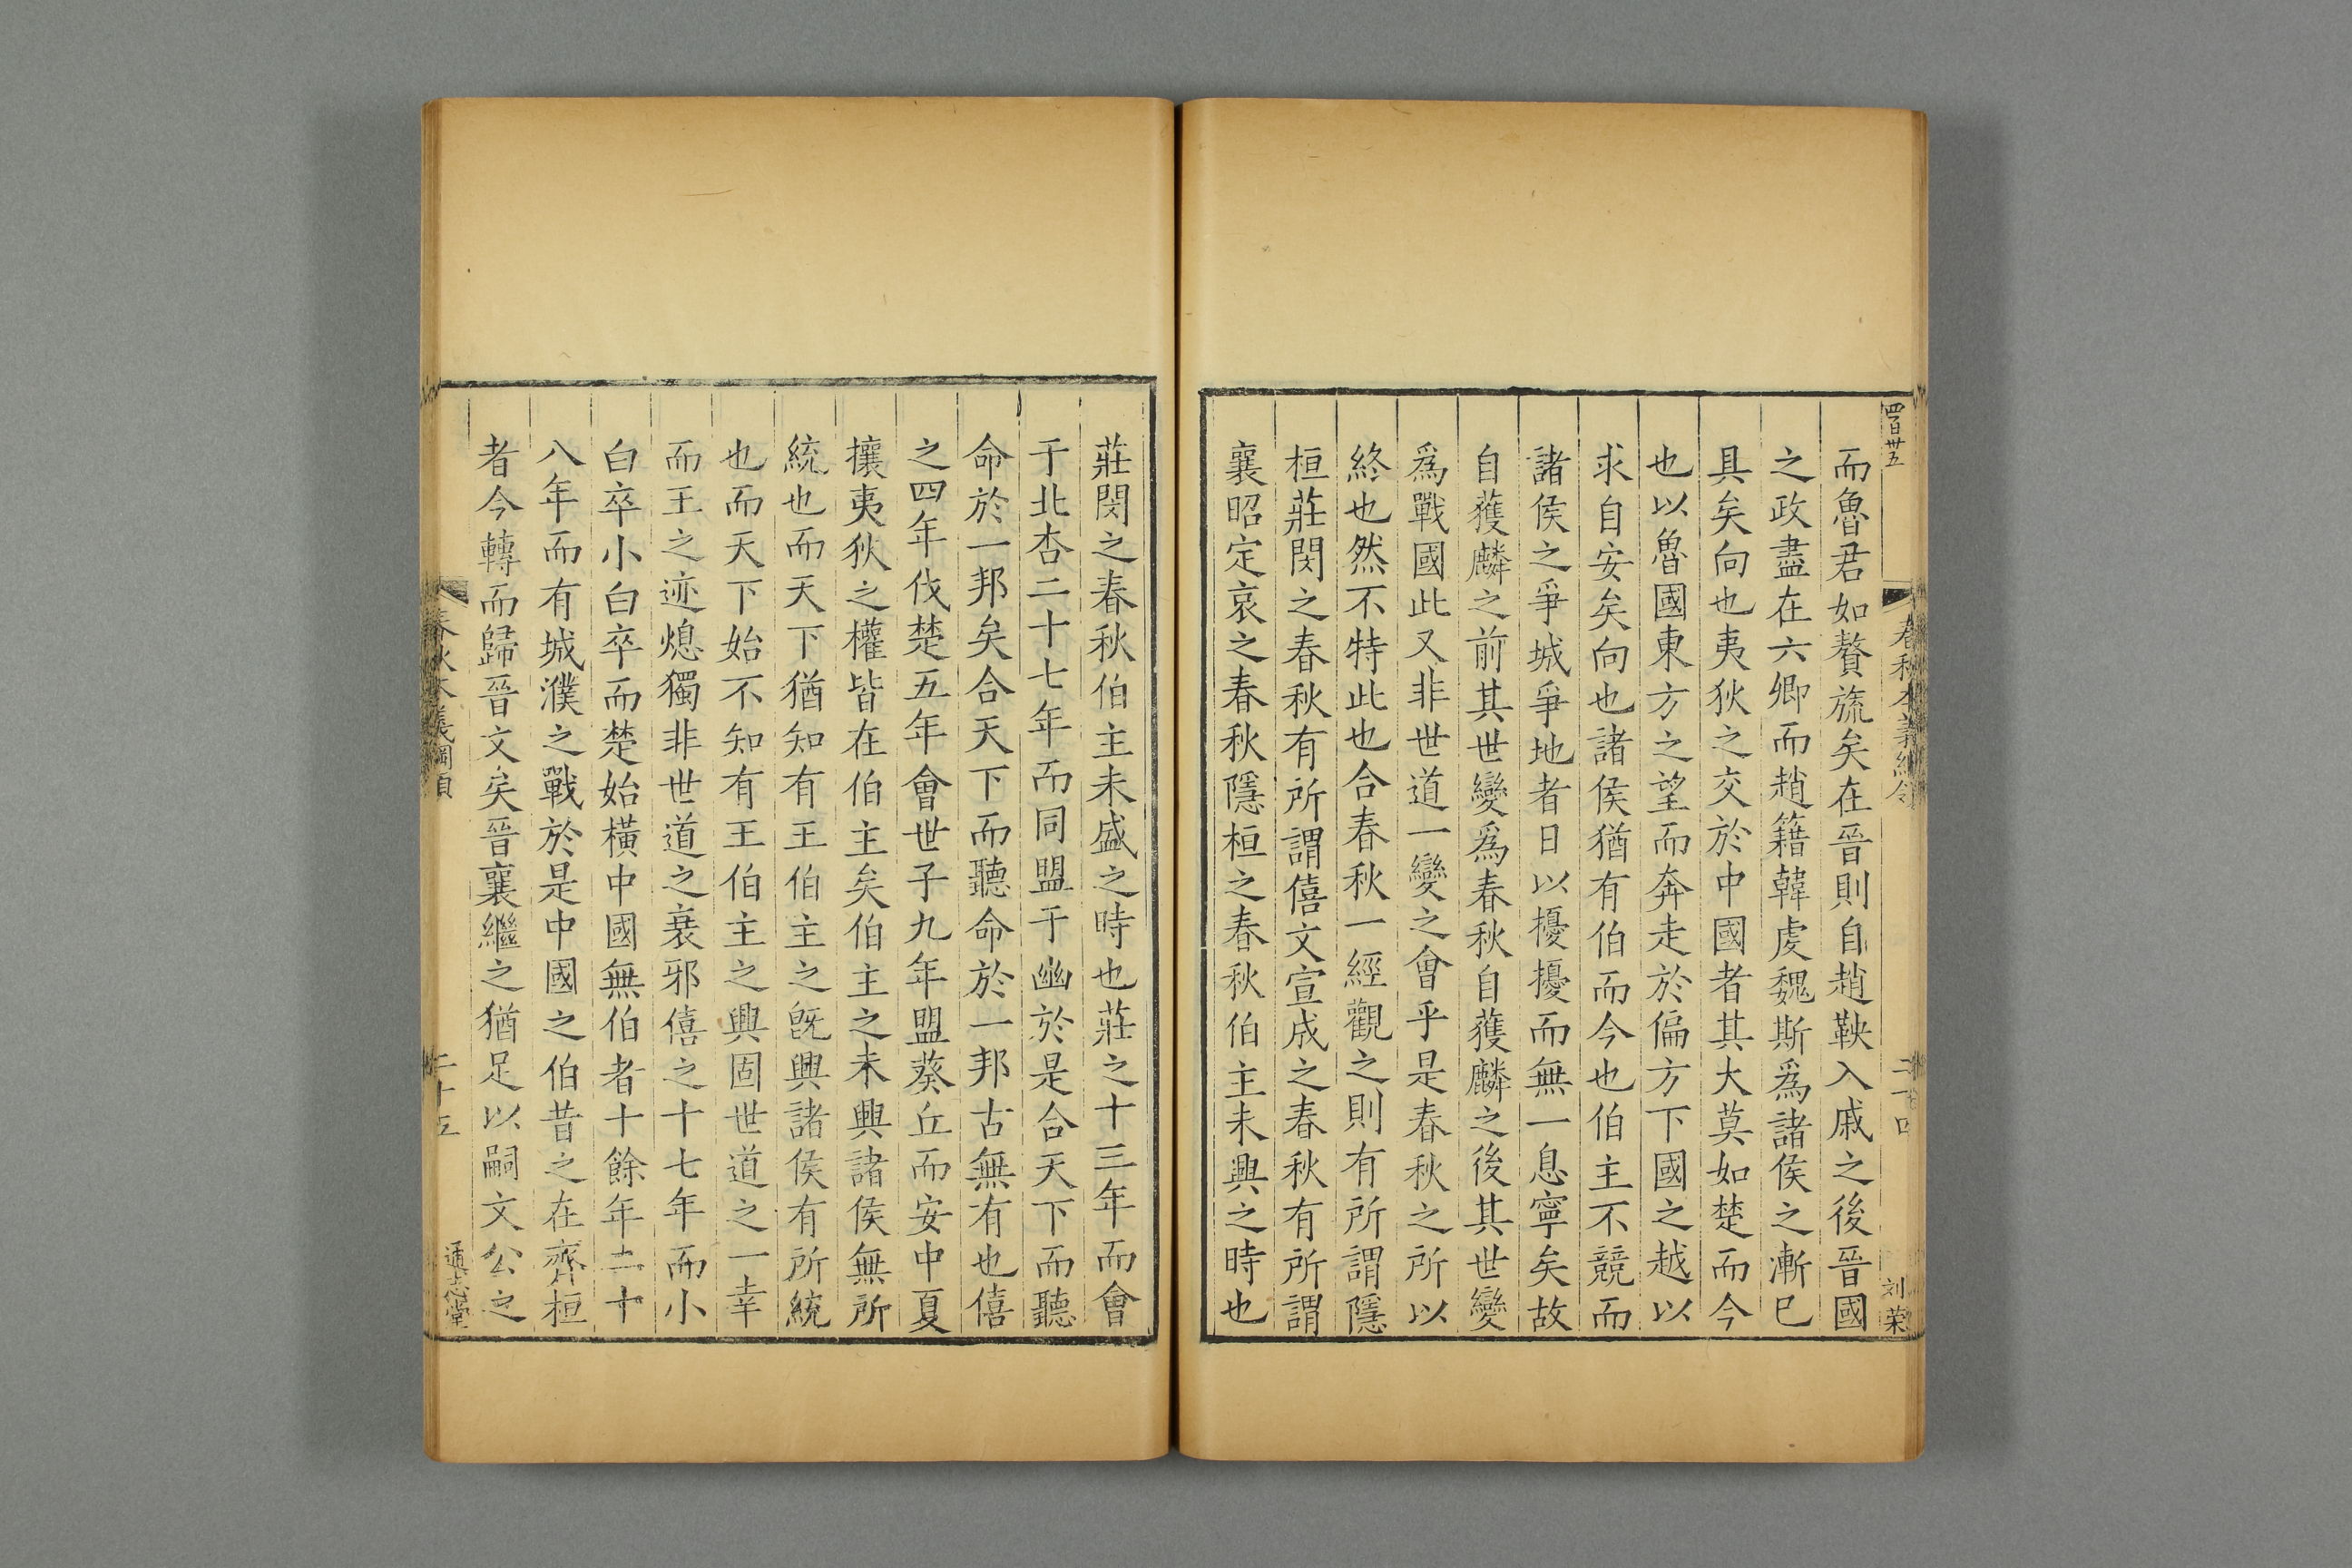 四百卅五
春秋本義綱領
二十四
刘荣
而魯君如贅旒矣在晉則自趙鞅入戚之後晉國
之政盡在六卿而趙籍韓虔魏斯爲諸侯之漸已
具矣向也夷狄之交於中國者其大莫如楚而今
也以魯國東方之望而奔走於偏方下國之越以
求自安矣向也諸侯猶有伯而今也伯主不競而
諸侯之爭城爭地者日以擾擾而無一息寧矣故
自獲麟之前其世變爲春秋自獲麟之後其世變
爲戰國此又非世道一變之會乎是春秋之所以
終也然不特此也合春秋一經觀之則有所謂隱
桓莊閔之春秋有所謂僖文宣成之春秋有所謂
襄昭定哀之春秋隱桓之春秋伯主未興之時也
莊閔之春秋伯主未盛之時也莊之十三年而會
于北杏二十七年而同盟于幽於是合天下而聽
命於一邦矣合天下而聽命於一邦古無有也僖
之四年伐楚五年會世子九年盟葵丘而安中夏
攘夷狄之權皆在伯主矣伯主之未興諸侯無所
統也而天下猶知有王伯主之旣興諸侯有所統
也而天下始不知有王伯主之興固世道之一幸
而王之迹熄獨非世道之衰邪僖之十七年而小
白卒小白卒而楚始橫中國無伯者十餘年二十
八年而有城濮之戰於是中國之伯昔之在齊桓
者今轉而歸晉文矣晉襄繼之猶足以嗣文公之
春秋本義綱領
二十五
通志堂